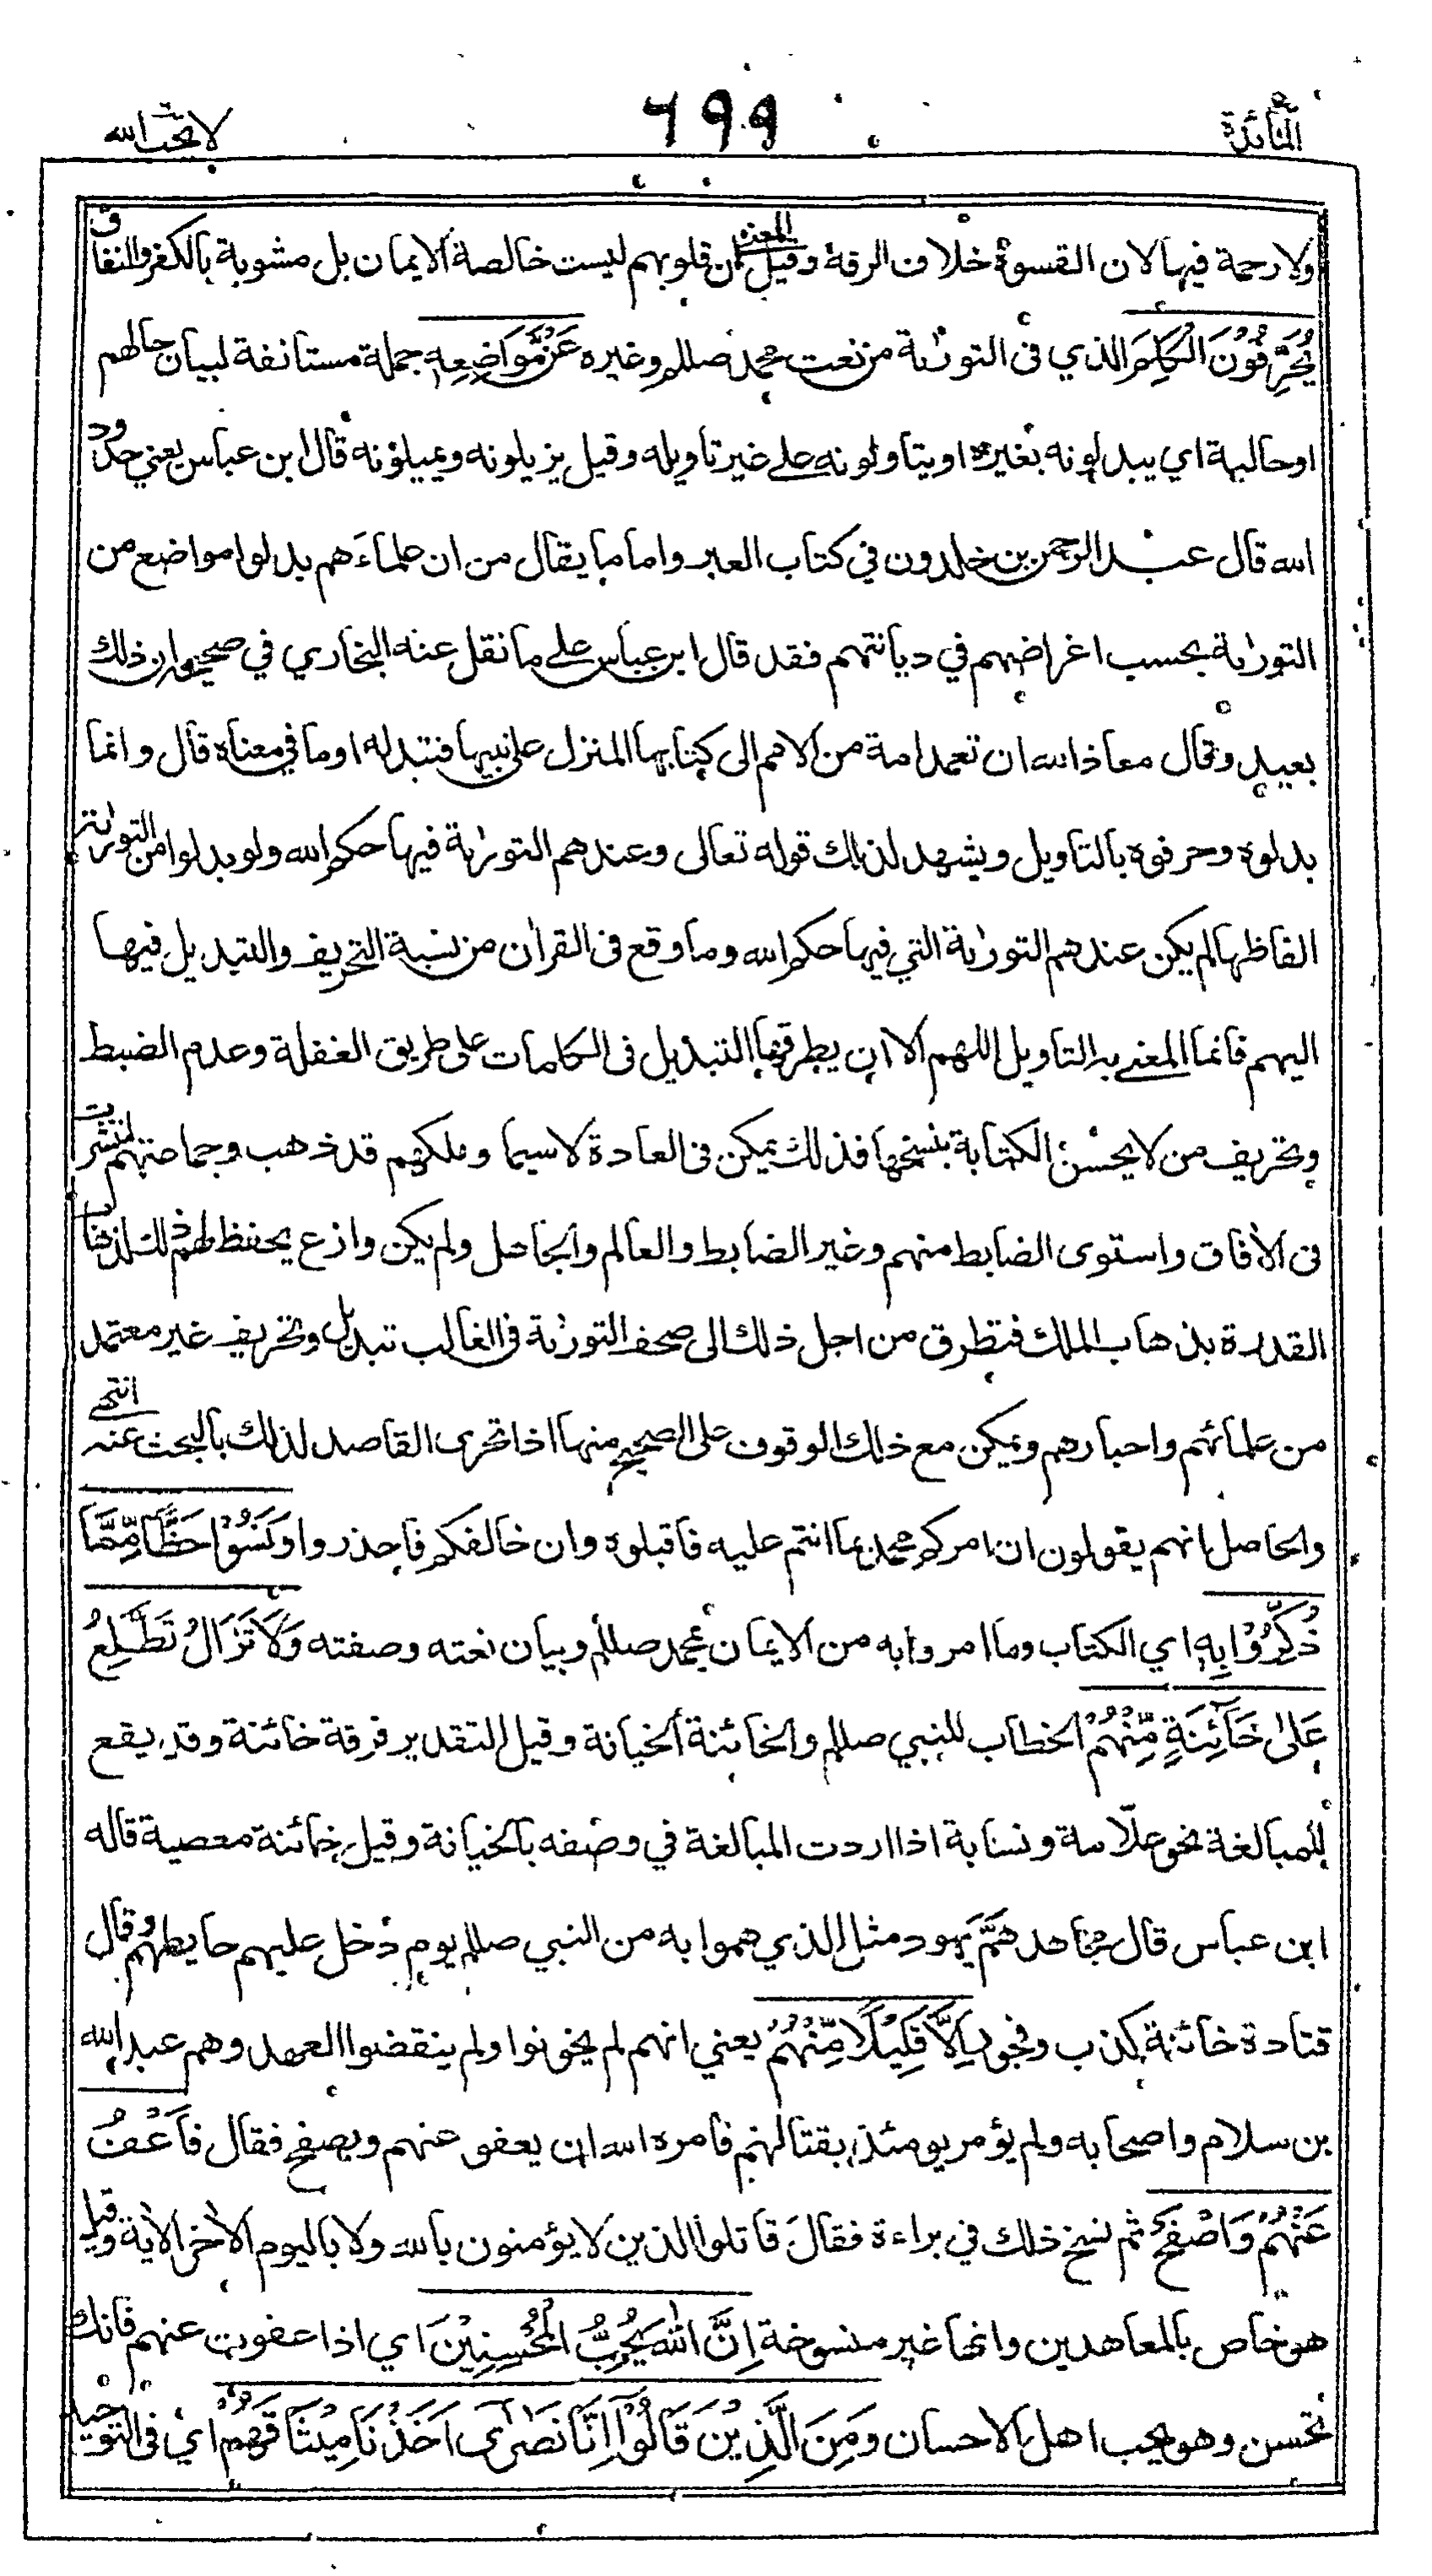 المائدة
٦٩٩
لا يحب الله
ولا رحمة فيها لان القسوة خلاف الرقة وقيل المعنى ان قلوبهم ليست خالصة الايمان بل مشوبة بالكفر والنفاق
يُحَرِّفُوْنَ الْكَلِمَ الذي فى التورٰىة من نعت محمد صللم وغيره عَنْ مَّوَاضِعِهٖ جملة مستانفة لبيان حالهم
او حالية اي يبدلونه بغيره او يتاولونه على غير تاويله وقيل يزيلونه ويميلونه قال ابن عباس يعني حدود
الله قال عبد الرحمن بن خلدون في كتاب العبر واما ما يقال من ان علماءَهم بدلوا مواضع من
التورٰىة بحسب اغراضهم في ديانتهم فقد قال ابن عباس على ما نقل عنه البخاري في صحيحه ان ذلك
بعيد وقال معاذ الله ان تعمد امة من الامم الى كتابها المنزل على نبيها فتبدله او ما في معناه قال وانما
بدلوه وحرفوه بالتاويل ويشهد لذلك قوله تعالى وعندهم التورٰىة فيها حكم الله ولو بدلوا من التورٰىة
الفاظها لم يكن عندهم التورٰىة التي فيها حكم الله وما وقع فى القراٰن من نسبة التحريف والتبديل فيها
اليهم فانما المعنى به التاويل اللهم الا ان يطرقها التبديل فى الكلمات على طريق الغفلة وعدم الضبط
وتحريف من لا يحسن الكتابة بنسخها فذلك يمكن فى العادة لاسيما وملكهم قد ذهب وجماعتهم انتشرت
فى الاٰفاق واستوى الضابط منهم وغير الضابط والعالم والجاهل ولم يكن وازع يحفظ لهم ذلك لذهاب
القدرة بذهاب الملك فتطرق من اجل ذلك الى صحف التورٰىة فى الغالب تبديل وتحريف غير معتمد
من علمائهم واحبارهم ويمكن مع ذلك الوقوف على الصحيح منها اذا تحرى القاصد لذلك بالبحث عنه انتهى
والحاصل انهم يقولون ان امركم محمد بما انتم عليه فاقبلوه وان خالفكم فاحذروا وَنَسُوْا حَظًّا مِّمَّا
ذُكِّرُوْا بِهٖ اي الكتاب وما امروا به من الايمان بمحمد صللم وبيان نعته وصفته وَلَا تَزَالُ تَطَّلِعُ
عَلٰى خَآئِنَةٍ مِّنْهُمْ الخطاب للنبي صللم والخائنة الخيانة وقيل التقدير فرقة خائنة وقد يقع
للمبالغة نحو علّامة ونسابة اذا اردت المبالغة في وصفه بالخيانة وقيل خائنة معصية قاله
ابن عباس قال مجاهد هَمَّ يهود مثل الذي هموا به من النبي صللم يوم دخل عليهم حايطهم وقال
قتادة خائنة كذب وفجور اِلَّا قَلِيْلًا مِّنْهُمْ يعني انهم لم يخونوا ولم ينقضوا العهد وهم عبد الله
بن سلام واصحابه ولم يؤمر يومئذ بقتالهم فامره الله ان يعفو عنهم ويصفح فقال فَاعْفُ
عَنْهُمْ وَاصْفَحْ ثم نسخ ذلك في براءة فقال قاتلوا الذين لا يؤمنون بالله ولا باليوم الاٰخر الاٰية وقيل
هو خاص بالمعاهدين وانها غير منسوخة اِنَّ اللّٰهَ يُحِبُّ الْمُحْسِنِيْنَ اي اذا عفوت عنهم فانك
تحسن وهو يحب اهل الاحسان وَمِنَ الَّذِيْنَ قَالُوْا اِنَّا نَصٰرٰى اَخَذْنَا مِيْثَاقَهُمْ اي فى التوحيد